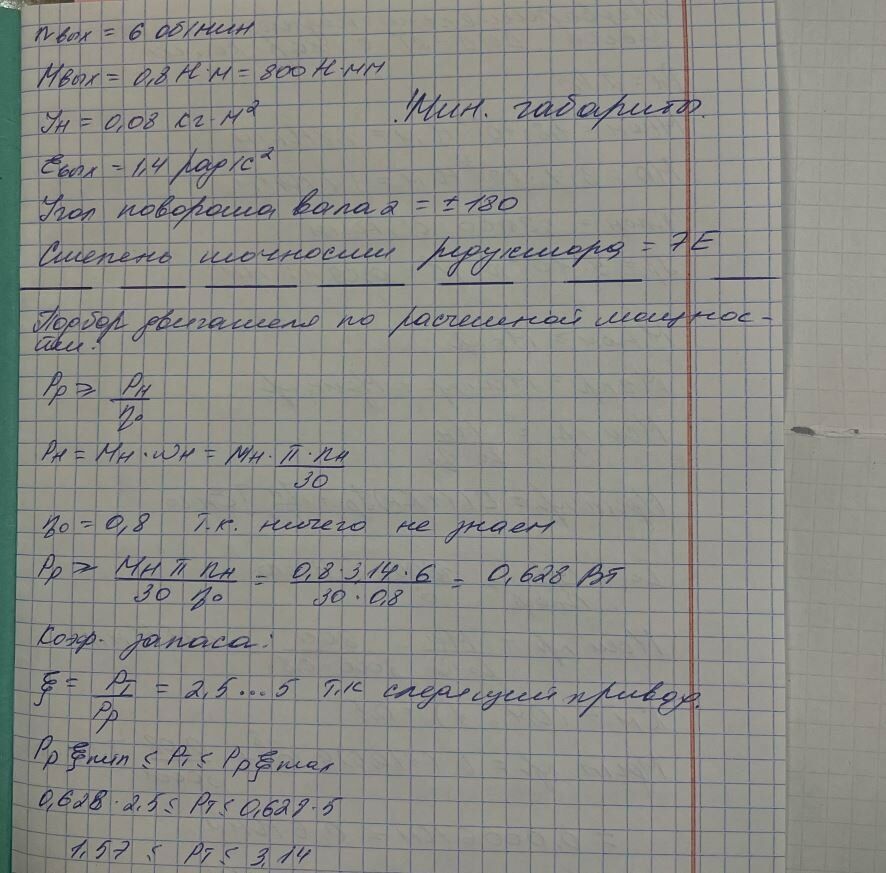 nвых = 6 об/мин
Mвых = 0,8 Н·м = 800 Н·мм
Jн = 0,08 кг·м²
! Мин. габариты.
εвых = 1,4 рад/с²
Угол поворота вала α = ± 180
Степень точности редуктора = 7E
Подбор двигателя по расчетной мощнос-
ти:
Pр ≥ Pн / η₀
Pн = Mн · ωн = Mн · π · nн / 30
η₀ = 0,8 т.к. ничего не знаем
Pр ≥ Mн π nн / 30 η₀ = 0,8 · 3,14 · 6 / 30 · 0,8 = 0,628 Вт
Коэф. запаса:
ξ = Pт / Pр = 2,5 ... 5 т.к следящий привод.
Pр ξmin ≤ Pт ≤ Pр ξmax
0,628 · 2,5 ≤ Pт ≤ 0,628 · 5
1,57 ≤ Pт ≤ 3,14